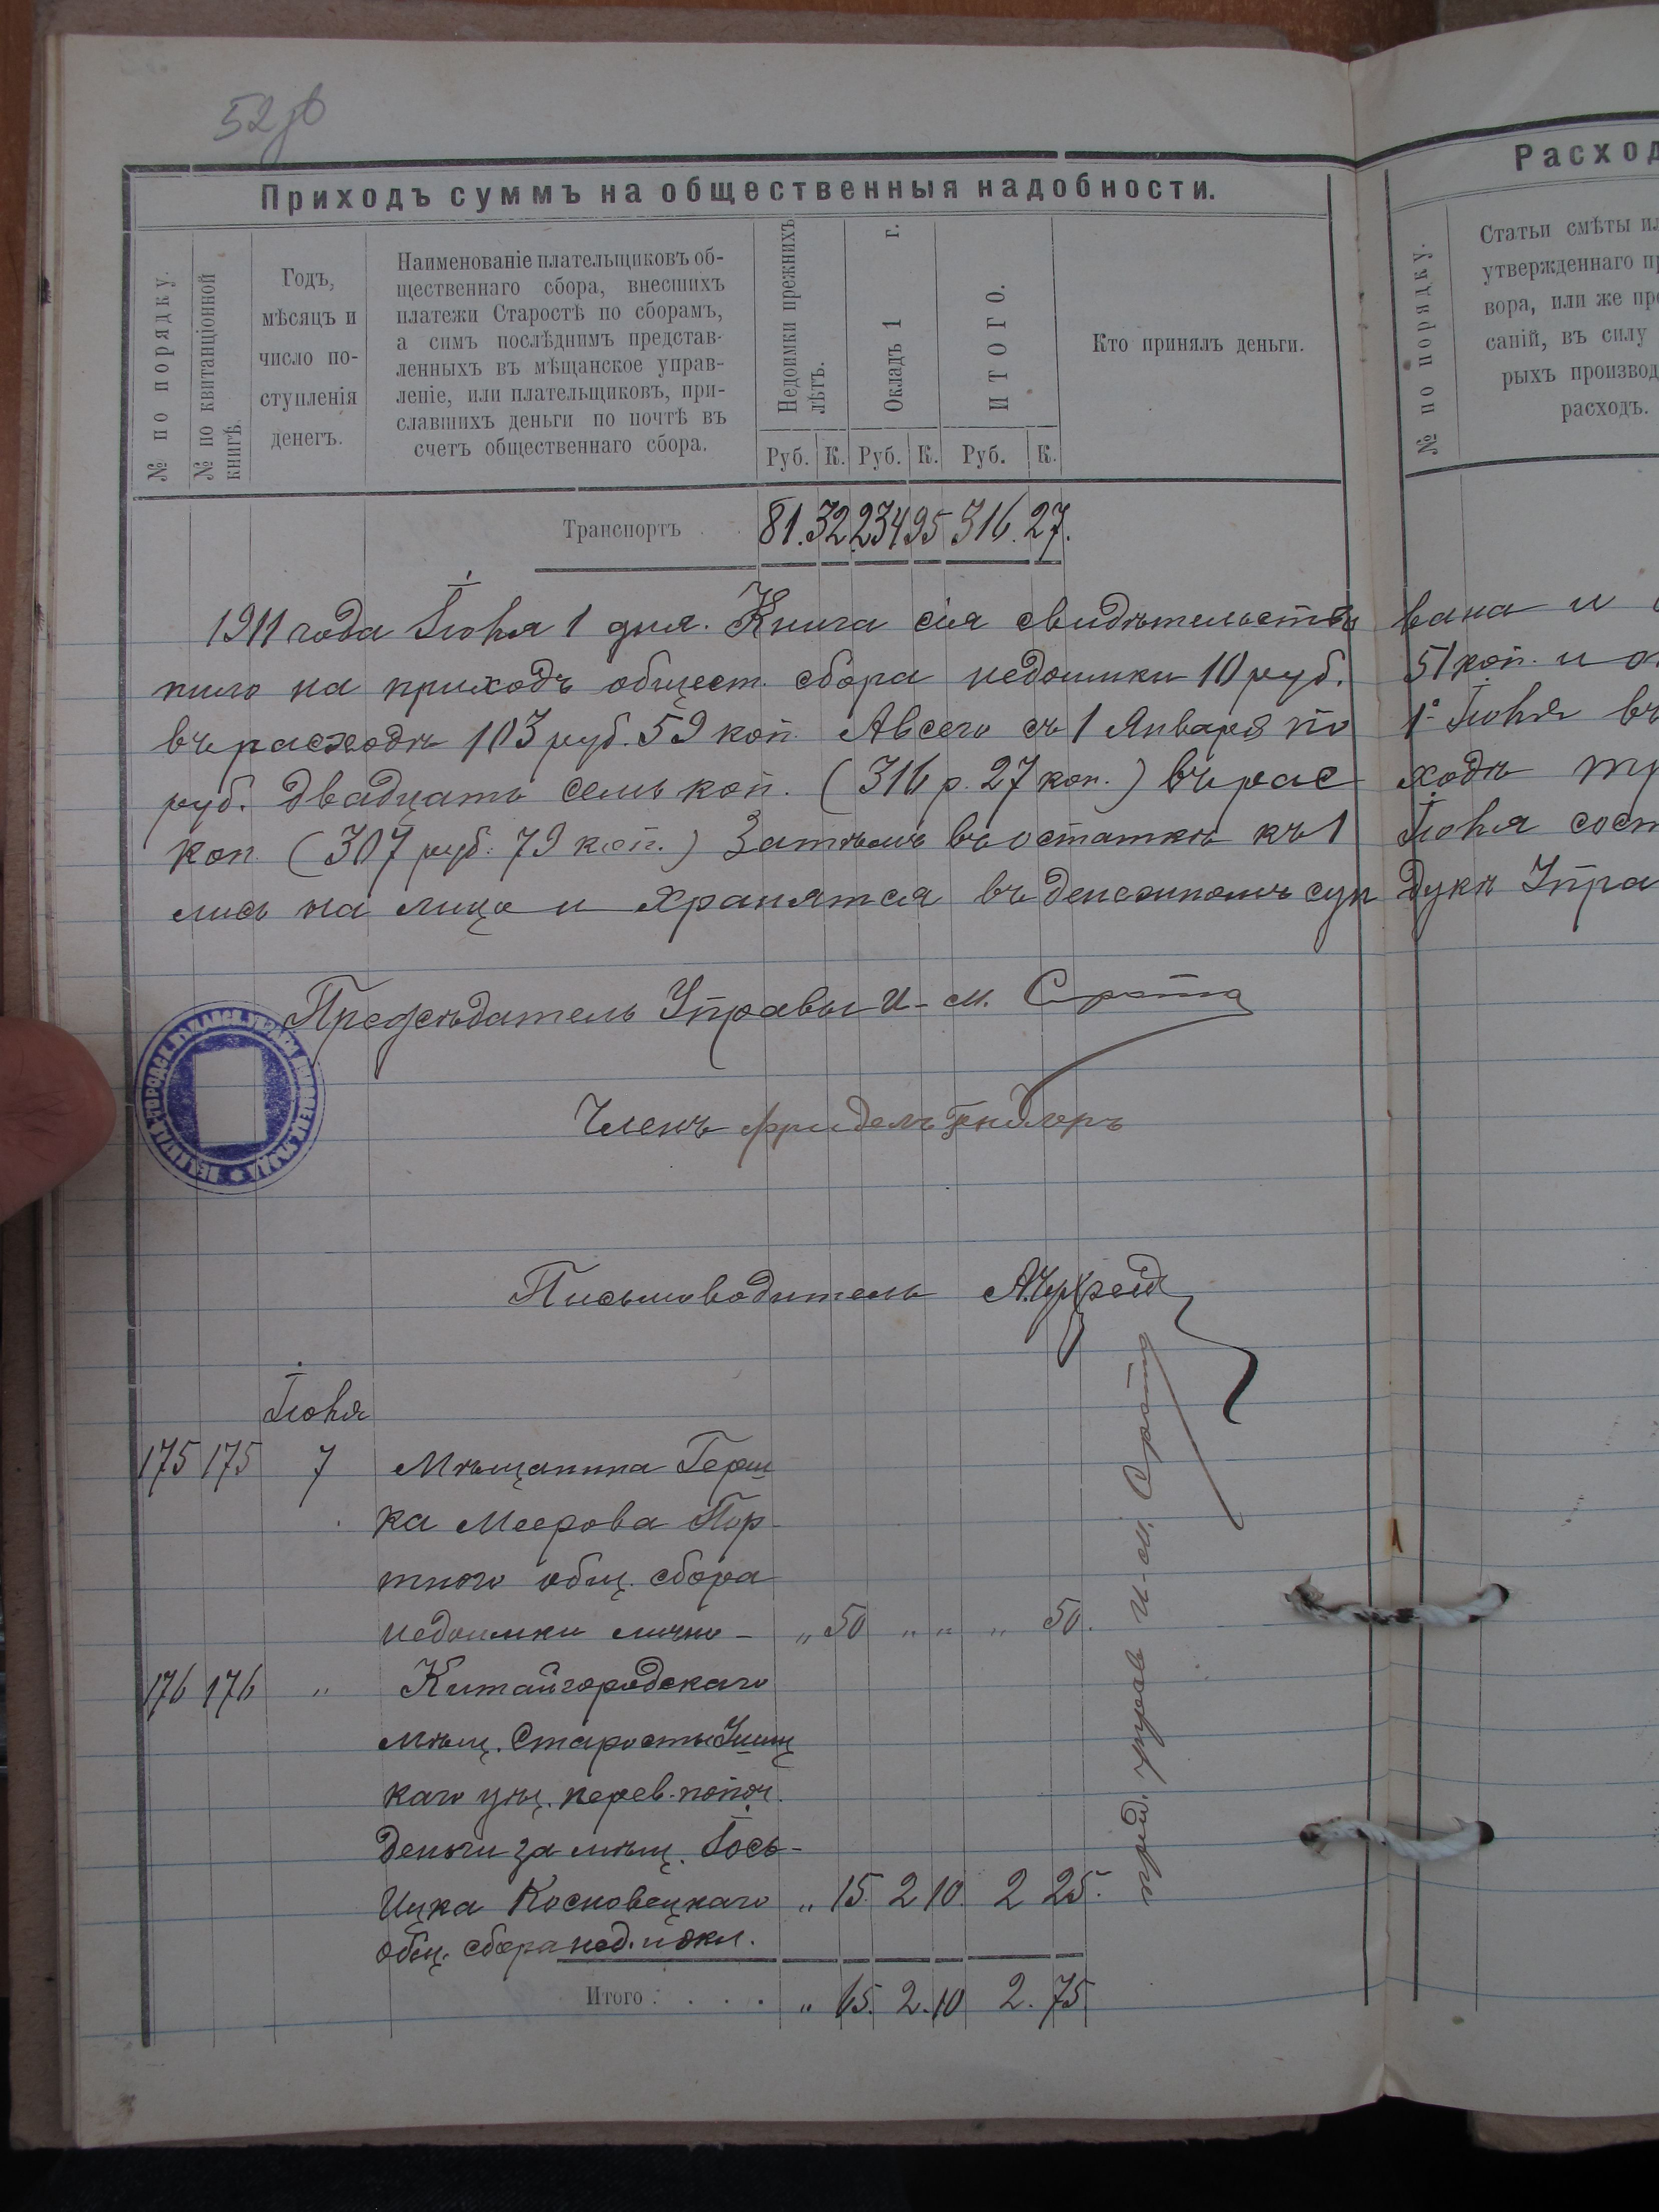 52 об
Приходъ суммъ на общественныя надобности.
№ по порядку.
№ по квитанціонной
книгѣ.
Годъ,
мѣсяцъ и
число по-
ступленія
денегъ.
Наименованіе плательщиковъ об-
щественнаго сбора, внесшихъ
платежи Старостѣ по сборамъ,
а симъ послѣднимъ представ-
ленныхъ въ мѣщанское управ-
леніе, или плательщиковъ, при-
славшихъ деньги по почтѣ въ
счетъ общественнаго сбора.
Недоимки прежнихъ
лѣтъ.
Окладъ 1 г.
ИТОГО.
Кто принялъ деньги.
Руб. К. Руб. К. Руб. К.
Транспортъ . . 81. 32 234 95 316. 27.
1911 года Іюня 1 дня. Книга сія свидѣтельство
пило на приходъ общест. сбора недоимки 10 руб.
въ расходъ 103 руб. 59 коп. А всего съ 1 Января по
руб. двадцать семь коп. (316 р. 27 коп.) въ рас
коп. (307 руб. 79 коп.) Затѣмъ въ остаткѣ къ 1
лись на лицо и хранятся въ денежномъ сун
Предсѣдатель Управы И-М.
Членъ
Письмоводитель
Іюня
175 175 7 Мѣщанина Герш
ка Меерова Пор-
тного общ. сбора
недоимки лично - „ 50 „ „ „ 50.
176 176 „ Китайгородскаго
мѣщ. Старосты Ушиц
каго уѣз. перев. по поч.
деньги за мѣщ. Іось-
Ицка Косновецкаго „ 15. 2 10. 2 25.
общ. сбора нед. и окл.
Итого: . . . „ 65. 2. 10 2. 75
пред. управ И-М.
Расход
№ по порядку.
Статьи смѣты ил
утвержденнаго пр
вора, или же пре
саній, въ силу
рыхъ производ
расходъ.
вана и
51 коп. и
1º Іюня въ
ходъ тр
Іюня сост
дукѣ Упра